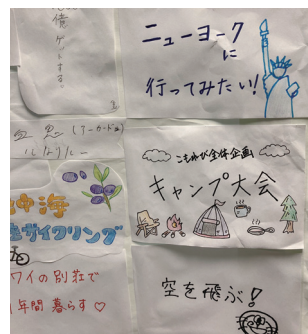 億ゲットする。
ニューヨーク
に
行ってみたい!
こもれび全体企画
キャンプ大会
中海
サイクリング
ワイの別荘で
年間暮らす♡
空を飛ぶ!